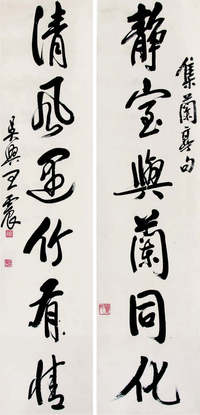 集蘭亭句
靜室與蘭同化
清風遇竹有情
吳興王震